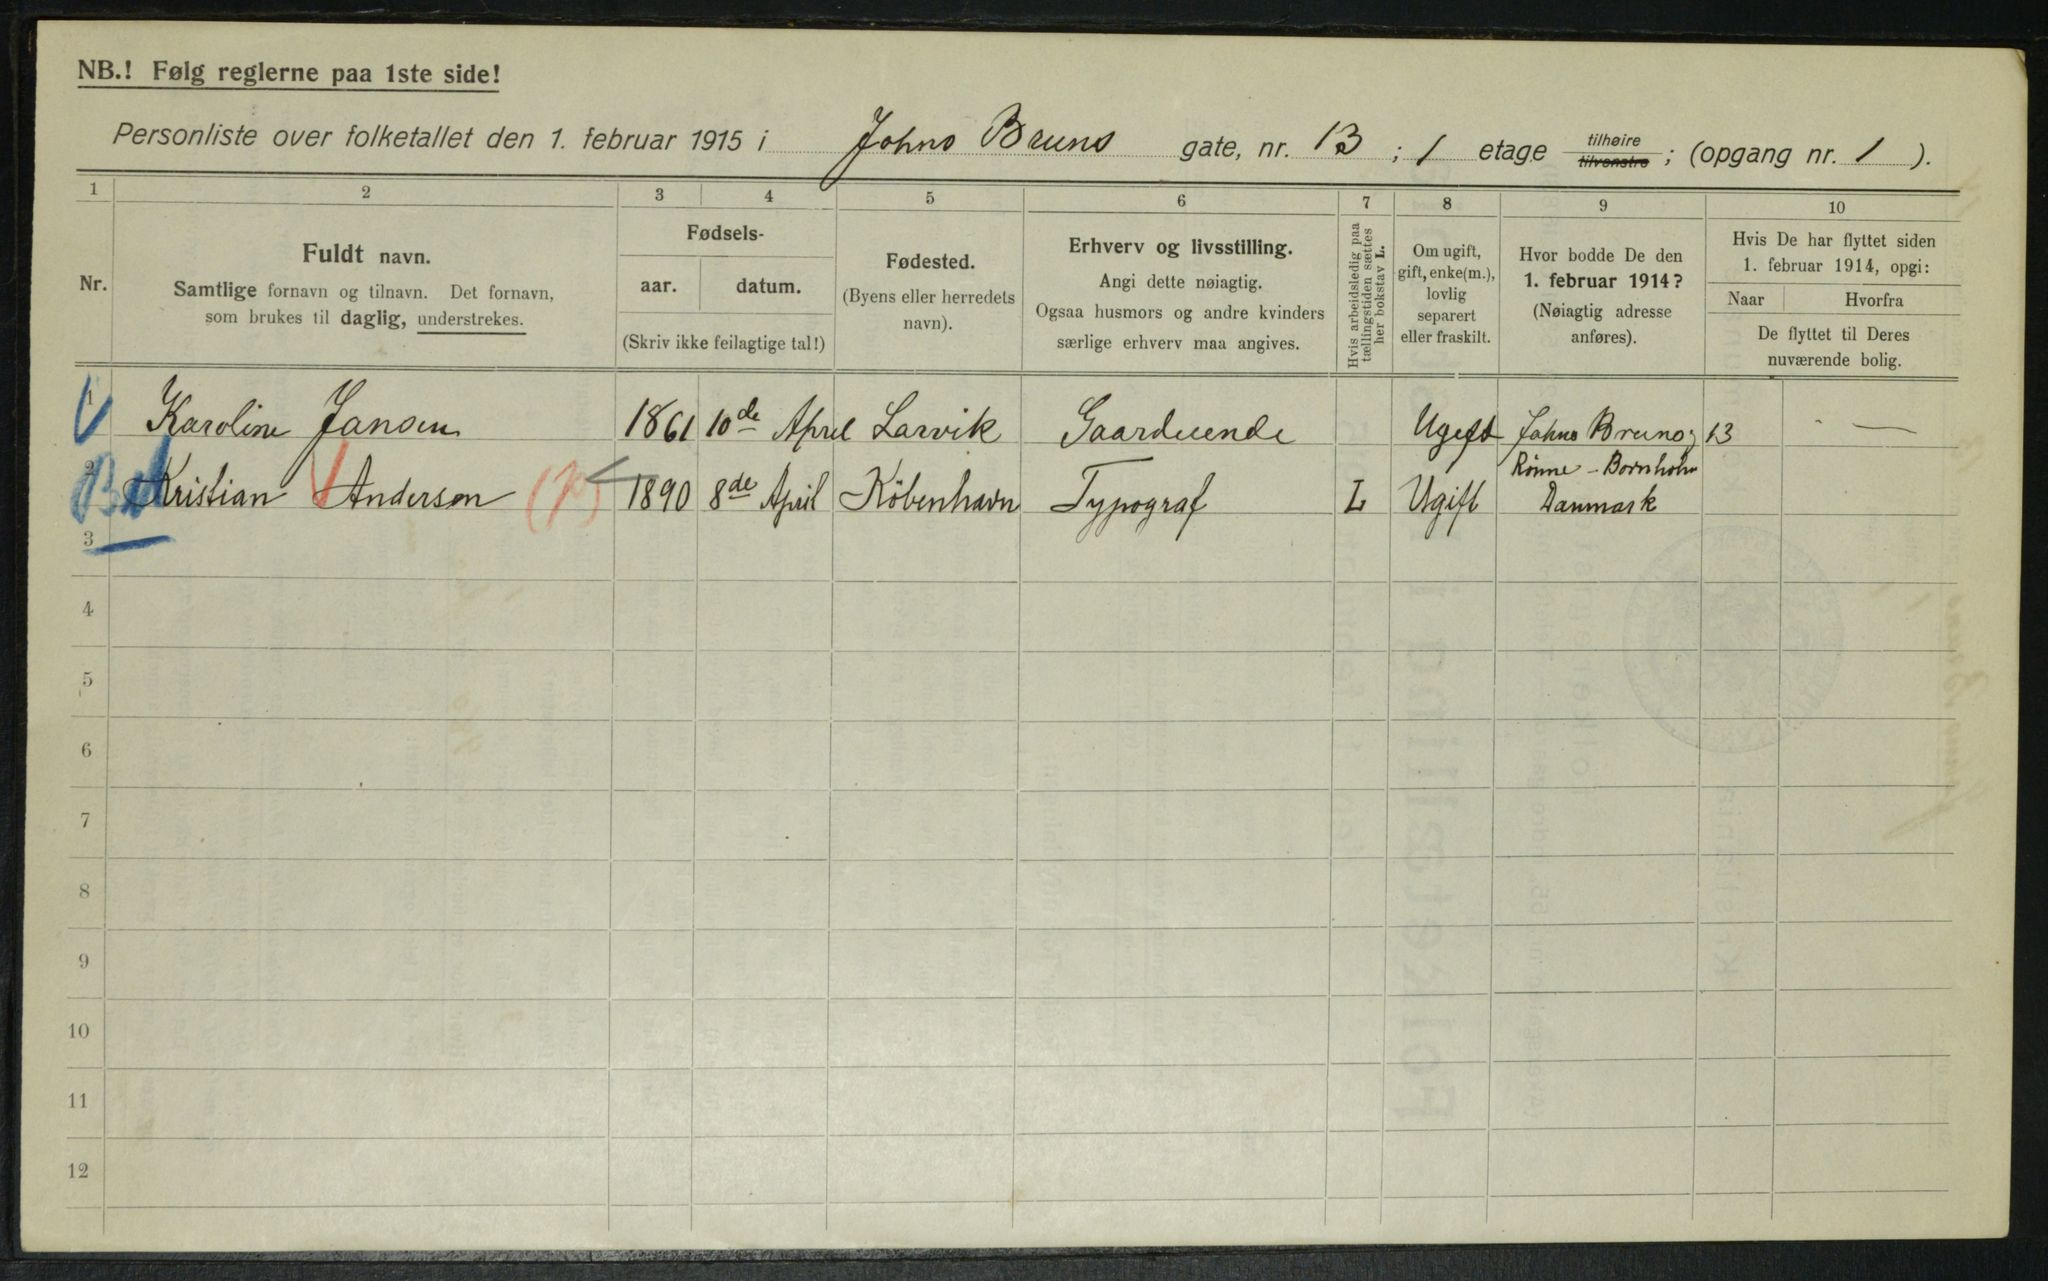 NB.! Følg reglerne paa 1ste side!
Personliste over folketallet den 1. februar 1915 i Johns Bruns gate, nr. 13 ; 1 etage tilhøire tilvenstre ; (opgang nr. 1 ).
1 2 3 4 5 6 7 8 9 10
Nr.
Fuldt navn.
Samtlige fornavn og tilnavn. Det fornavn,
som brukes til daglig, understrekes.
Fødsels-
aar. datum.
(Skriv ikke feilagtige tal!)
Fødested.
(Byens eller herredets
navn).
Erhverv og livsstilling.
Angi dette nøiagtig.
Ogsaa husmors og andre kvinders
særlige erhverv maa angives.
Hvis arbeidsledig paa
tællingstiden sættes
her bokstav L.
Om ugift,
gift, enke(m.),
lovlig
separert
eller fraskilt.
Hvor bodde De den
1. februar 1914?
(Nøiagtig adresse
anføres).
Hvis De har flyttet siden
1. februar 1914, opgi:
Naar Hvorfra
De flyttet til Deres
nuværende bolig.
1 Karoline Jansen 1861 10de April Larvik Gaardeiende Ugift Johns Brunsg 13 - —
2 Kristian Anderson 1890 8de April Köbenhavn Typograf L Ugift Rönne - Bornholm
Danmark
3
4
5
6
7
8
9
10
11
12